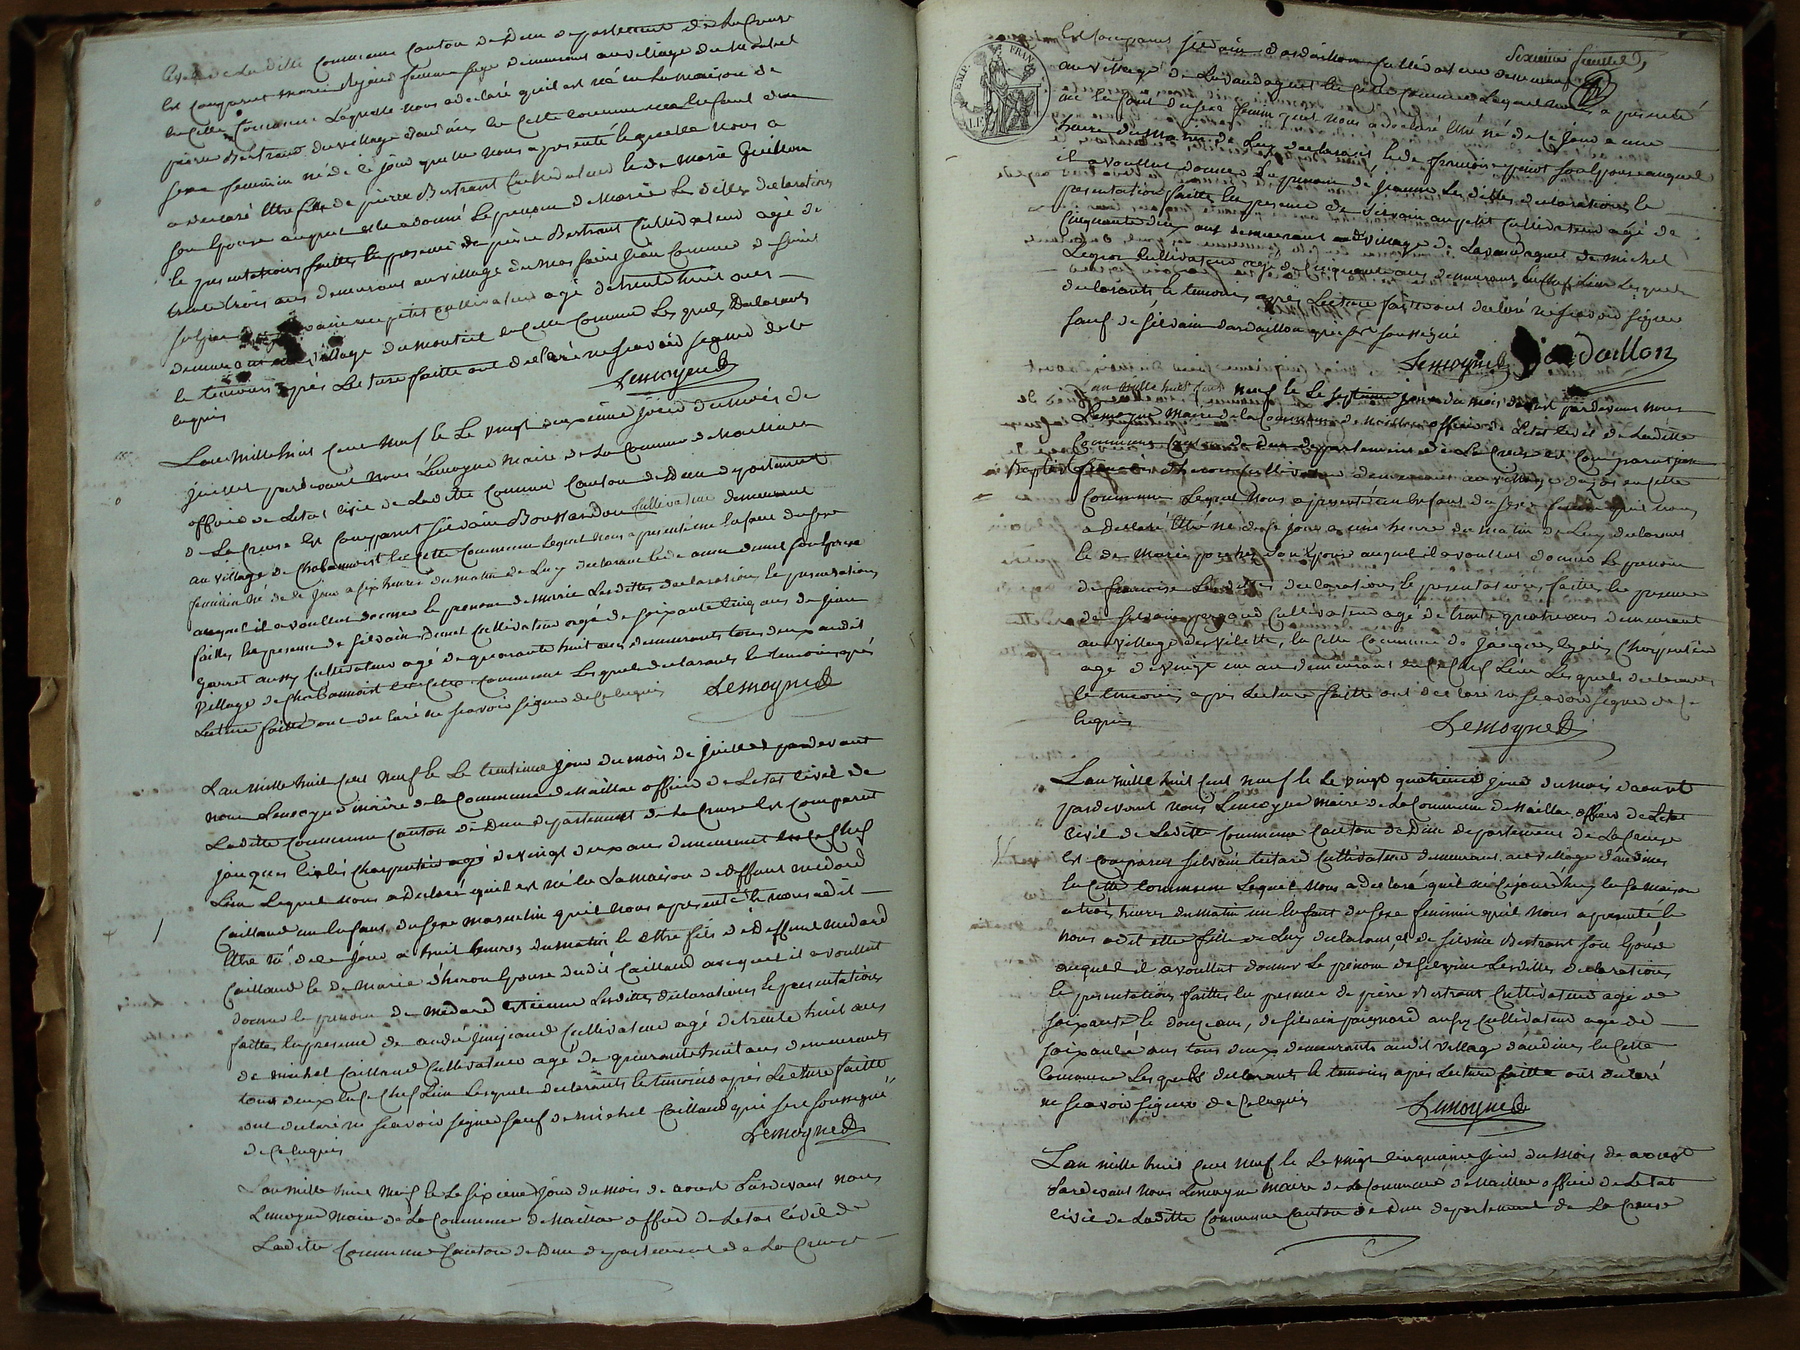 Civil de La ditte Commune Canton de Dun departement de La Creuse
Est Comparut marie femme sage demeurant au village du Montiel
en Cette Commune Laquelle nous a declaré qu'il est né en La maison de
pierre Bertrand du village d'audines en Cette Commune un Enfant du
sexe feminin né de ce jour quelle nous a presenté le quelle nous a
a declaré Etre fille de pierre Bertrant Cultivateur Et de Marie Guillon
son Epouse auquel elle a donné Le prenom de Marie Les dittes declarations
Et presentations faittes En presence de pierre Bertrant Cultivateur agé de
trente trois ans demeurant au village du mas Saint Jean Commune de Saint
Sulpice petit Cultivateur agé de trente huit ans
demeurant au village du montiel En Cette Commune Les quels Declarants
Et temoins après Lecture faitte ont declaré ne scavoir signer de ce
enquis Lemoyne
L'an mille huit Cent Neuf Et Le vingt deuxieme jour du mois de
juillet pardevant nous Lemoyne maire de La Commune de Maillac
officier de L'etat Civil de La ditte Commune Canton de Dun departement
de La Creuse Est Comparut silvain Boussardon Cultivateur demeurant
au village de Chabannoist En Cette Commune Lequel nous a presenté un Enfant du sexe
feminin né de ce jour a six heures du matin de Luy declarant Et de anne dunet son Epouse
auquel il a voullut donner Le prenom de Marie Les dittes declarations Et presentations
faittes En presence de silvain Dunet Cultivateur agé de soixante Cinq ans de jean
garret aussy Cultivateur agé de quarante huit ans demeurants tous deux audit
village de Chabannoist En Cette Commune Les quels declarants Et temoins après
Lecture faitte ont declaré ne scavoir signer de Ce Enquis Lemoyne
L'an mille huit Cent Neuf Et Le trentieme jour du mois de juillet pardevant
nous Lemoyne maire de la Commune de Maillac officier de L'etat Civil de
La ditte Commune Canton de Dun departement de La Creuse Est Comparut
jacques Charpentier agé de vingt deux ans demeurant En Ce Chef
Lieu Lequel nous a declaré qu'il est né En La maison de Deffunt medard
Caillaud un Enfant du sexe masculin qu'il nous a presenté Et nous a dit
Etre né de ce jour a huit heures du matin Et Etre fils de Deffunt medard
Caillaud Et de Marie dheron Epouse dudit Caillaud auquel il a voullut
donner Le prenom de medard Estienne Les dittes declarations Et presentations
faittes En presence de andré Cultivateur agé de trente huit ans
de michel Caillaud Cultivateur agé de quarante huit ans demeurants
tous deux En Ce Chef Lieu Lesquels declarants Et temoins après Lecture faitte
ont declaré ne scavoir signer sauf de michel Caillaud qui sest soussigné
de Ce Enquis Lemoyne
L'an mille huit Neuf Et Le sixieme jour du mois de aoust Pardevant nous
Lemoyne Maire de La Commune de Maillac officier de L'etat Civil de
La ditte Commune Canton de Dun departement de La Creuse
Sixieme feuillet
EMP. FRAN.
Est Comparut silvain dardaillon Cultivateur demeurant
au village de Lavaudaguet En Cette Commune Lequel nous a presenté
un Enfant du sexe feminin qu'il nous a declaré Etre né de Ce jour a une
heure du matin de Luy declarant Et de francoise son Epouse auquel
il a voullut donner Le prenom de jeanne Les dittes declarations Et
presentations faittes En presence de silvain aupetit Cultivateur agé de
Cinquante deux ans demeurant au village de Lavaudaguet de michel
Cultivateur agé de Cinquante ans demeurant En Chef Lieu Lesquels
declarants Et temoins après Lecture faitte ont declaré ne scavoir signer
sauf de silvain dardaillon qui sest soussigné
Lemoyne Dardaillon
L'an mille huit Cent Neuf Et Le septieme jour du mois d'aoust pardevant nous
Lemoyne Maire de la Commune de Maillac officier de L'etat Civil de La ditte
Commune Canton de Dun departement de La Creuse Est Comparut jean
Baptiste demeurant au village en Cette
Commune Lequel nous a presenté un Enfant du sexe feminin qu'il nous
a declaré Etre né de Ce jour a une heure du matin de Luy declarant
Et de Marie son Epouse auquel il a voullut donner Le prenom
de francoise Les dittes declarations Et presentations faittes En presence
de silvain Cultivateur agé de trente quatre ans demeurant
au village de Vilette, En Cette Commune de jacques Charpentier
agé de vingt un ans demeurant En Ce Chef Lieu Les quels declarants
Et temoins après Lecture faitte ont declaré ne scavoir signer de Ce
Enquis Lemoyne
L'an mille huit Cent Neuf Et Le vingt quatrieme jour du mois d'aoust
pardevant nous Lemoyne maire de La Commune de Maillac officier de L'etat
Civil de La ditte Commune Canton de Dun departement de La Creuse
Est Comparut silvain Cultivateur demeurant au village d'audines
En Cette Commune Lequel nous a declaré qu'il né Cejourd'huy En sa maison
a trois heures du matin un Enfant du sexe feminin qu'il nous a presenté Et
nous a dit Etre fille de Luy declarant et de silvine Bertrant son Epouse
auquel il a voullut donner Le prenom de silvine Les dittes declarations
Et presentations faittes En presence de pierre Bertrant Cultivateur agé de
soixante Et douze ans, de silvain poignard aussy Cultivateur agé de
soixante ans tous deux demeurants audit village d'audines En Cette
Commune Les quels declarants Et temoins après Lecture faitte ont declaré
ne scavoir signer de Ce Enquis Lemoyne
L'an mille huit Cent Neuf Et Le vingt Cinquieme jour du mois de aoust
Pardevant nous Lemoyne maire de La Commune de Maillac officier de L'etat
Civil de La ditte Commune Canton de Dun departement de La Creuse